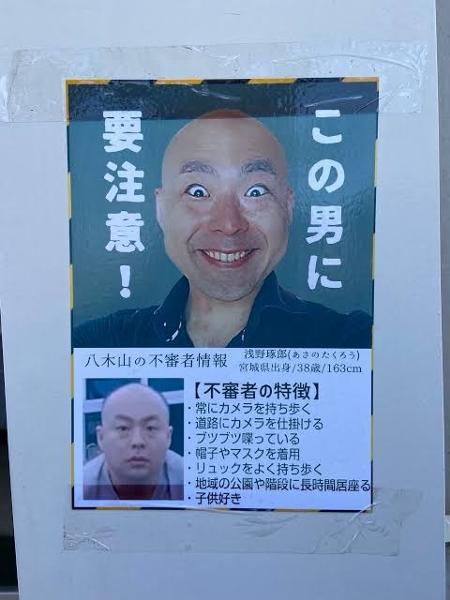 この男に
要注意！
八木山の不審者情報
浅野琢郎(あさのたくろう)
宮城県出身/38歳/163cm
【不審者の特徴】
・常にカメラを持ち歩く
・道路にカメラを仕掛ける
・ブツブツ喋っている
・帽子やマスクを着用
・リュックをよく持ち歩く
・地域の公園や階段に長時間居座る
・子供好き